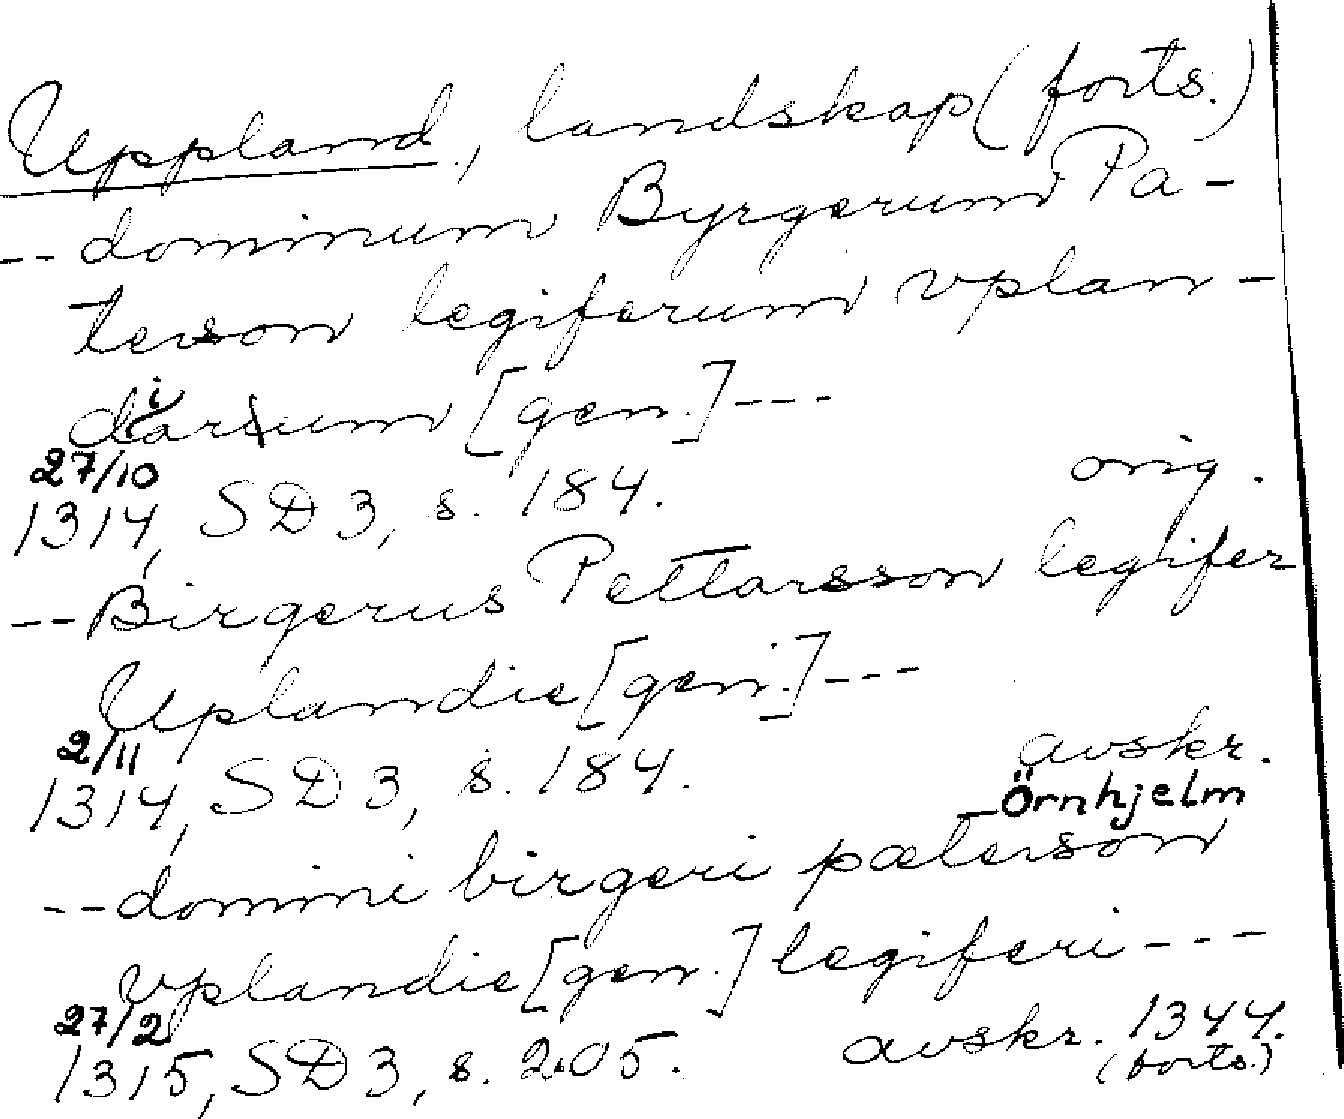 Uppland, landskap (forts.)
-- dominum Byrgerum Pa-
terson legiferum vplan-
diarum [gen.] ---
27/10
1314, SD 3, s. 184. orig.
-- Birgerus Pettarsson legifer
Uplandie [gen.] ---
2/11
1314, SD 3, s. 184. avskr.
Örnhjelm
-- domini birgeri pæterson
vplandie [gen.] legiferi ---
27/2
1315, SD 3, s. 205. avskr. 1344.
(forts.)